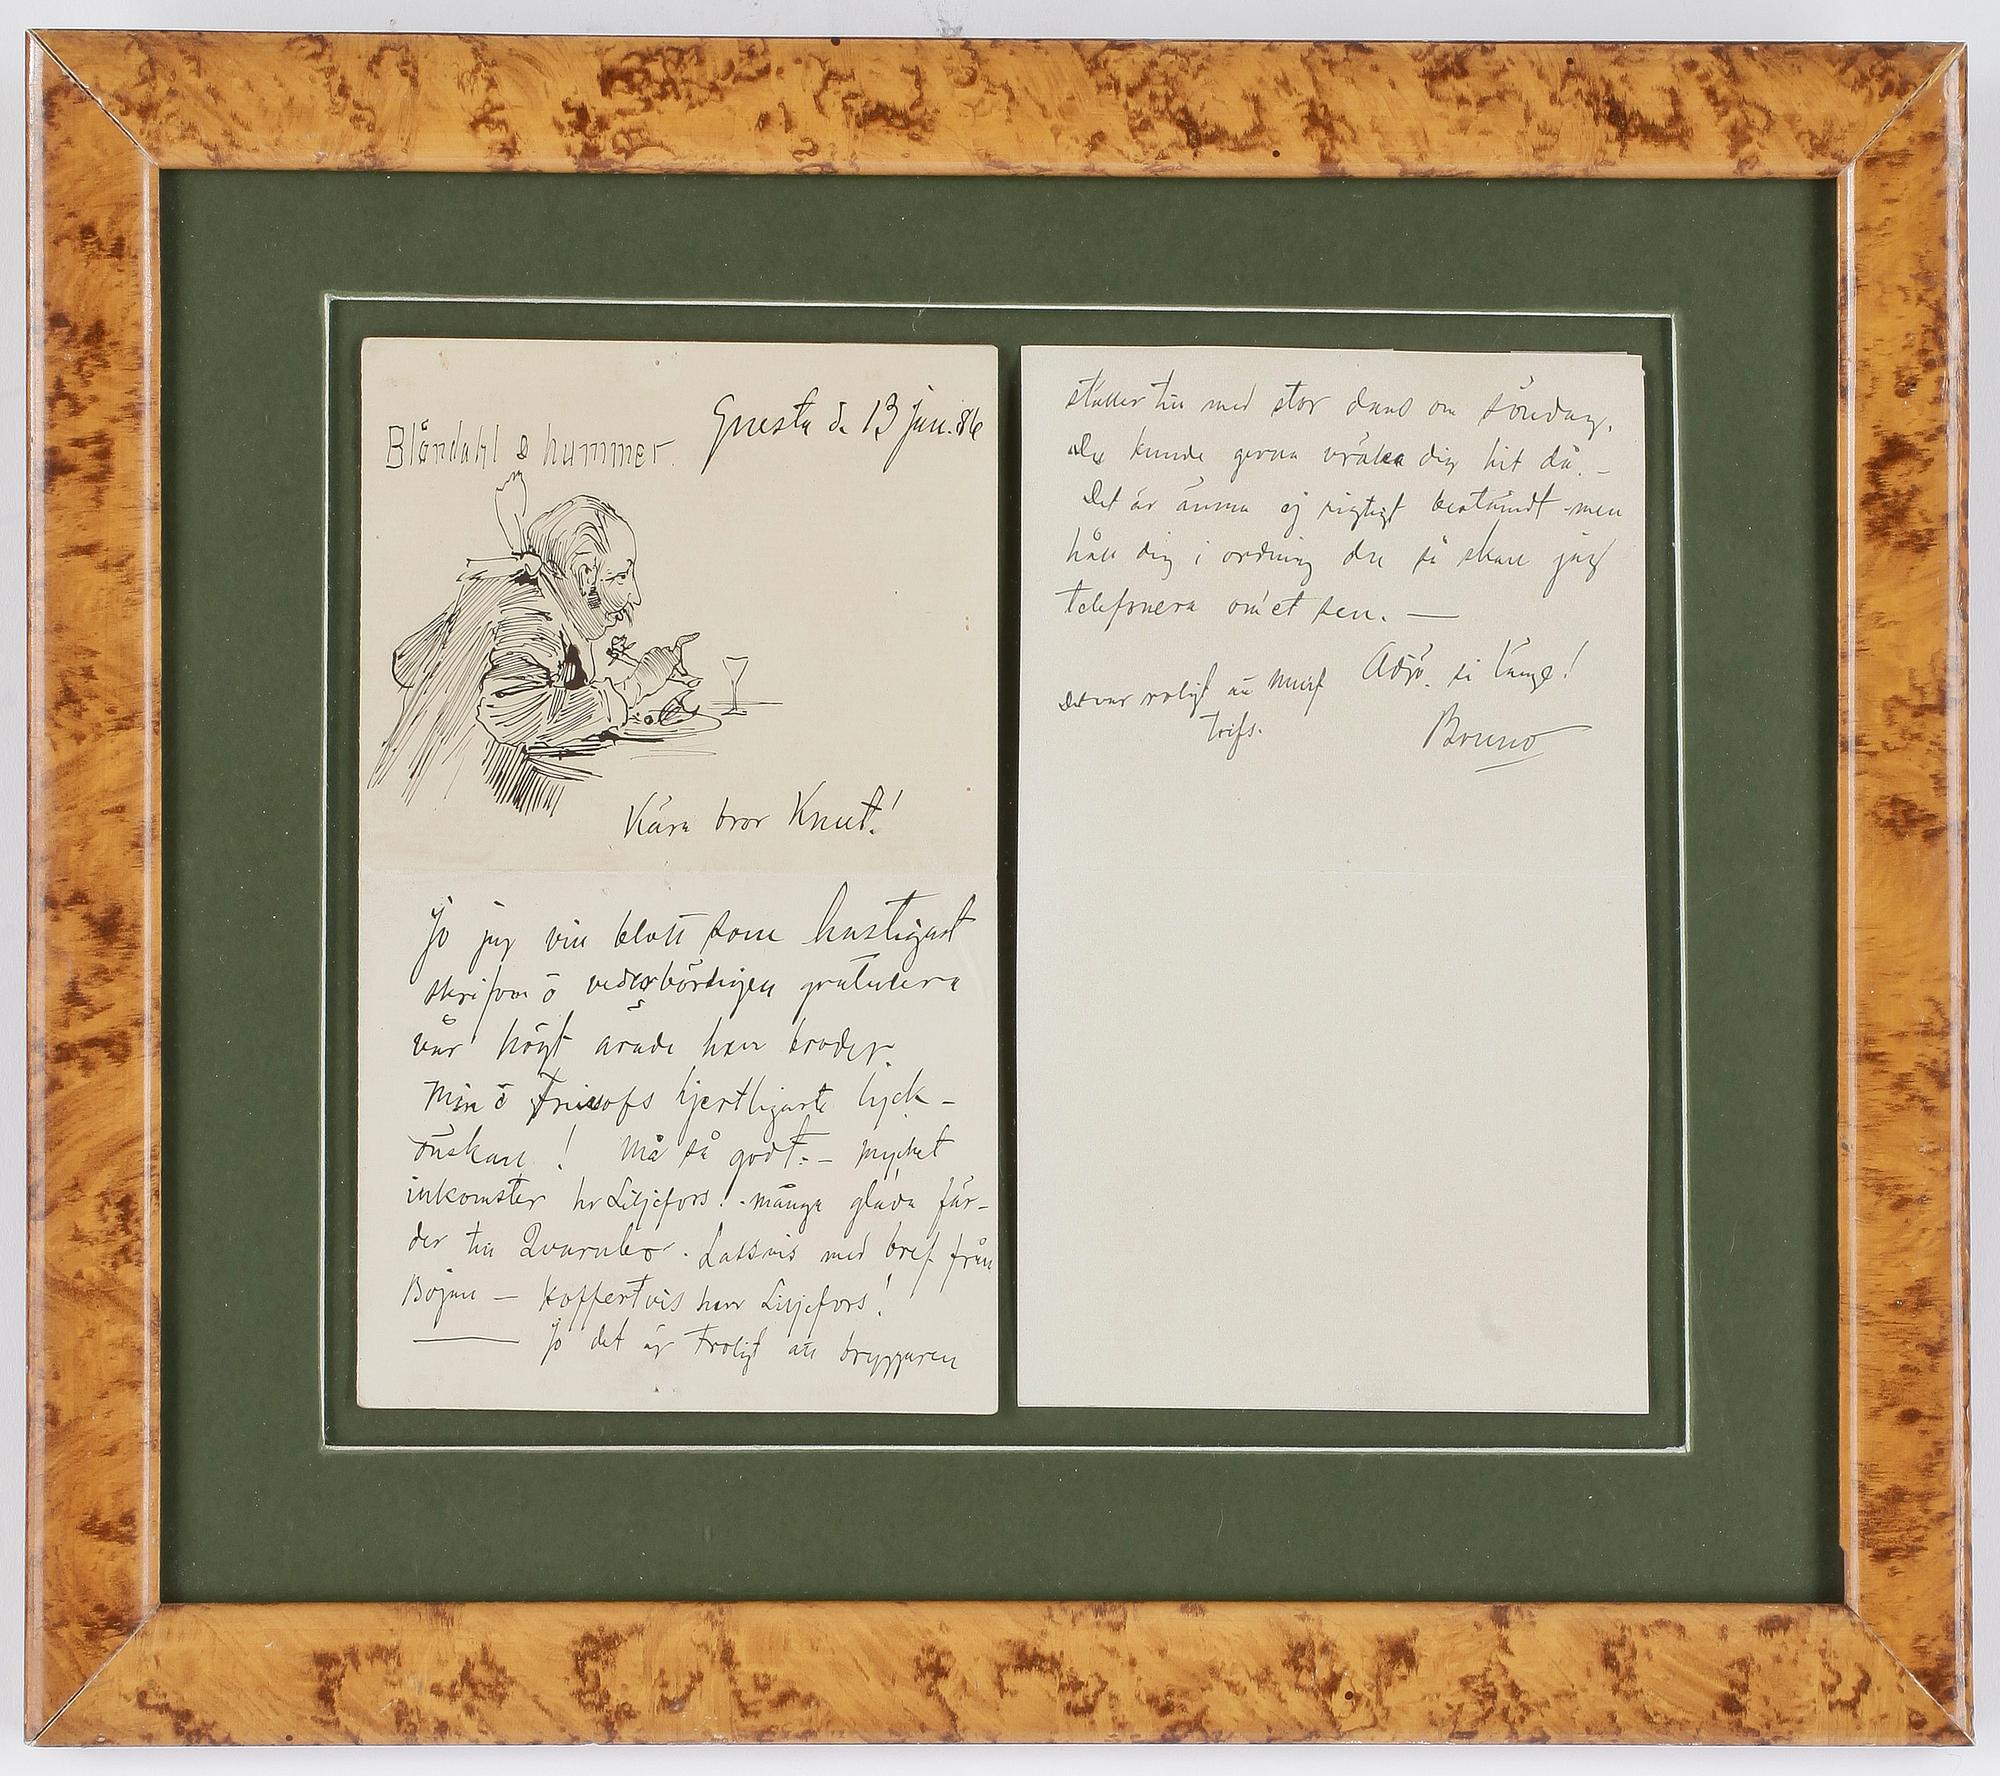 Gnesta d. 13 jan. 86
Blöndahl & hummer.
Kära bror Knut!
Jo jag vill blott som hastigast
skrifva ö vederbördigen gratulera
vår högt ärade herr broder.
Min ö hjertligaste lyck-
önskan! Må så godt. – mycket
inkomster hr Liljefors! – många glada fär-
der till Qvarnbo. Lassvis med bref från
Bojan – Koffertvis herr Liljefors!
Jo det är troligt att bryggaren
ställer till med stor dans om söndag.
Du kunde gerna vräka dig hit då. –
Det är ännu ej rigtigt bestämdt – men
håll dig i ordning du så skall jag
telefonera om'et sen. —
Adjö så länge!
Det var roligt att
trifs.
Bruno